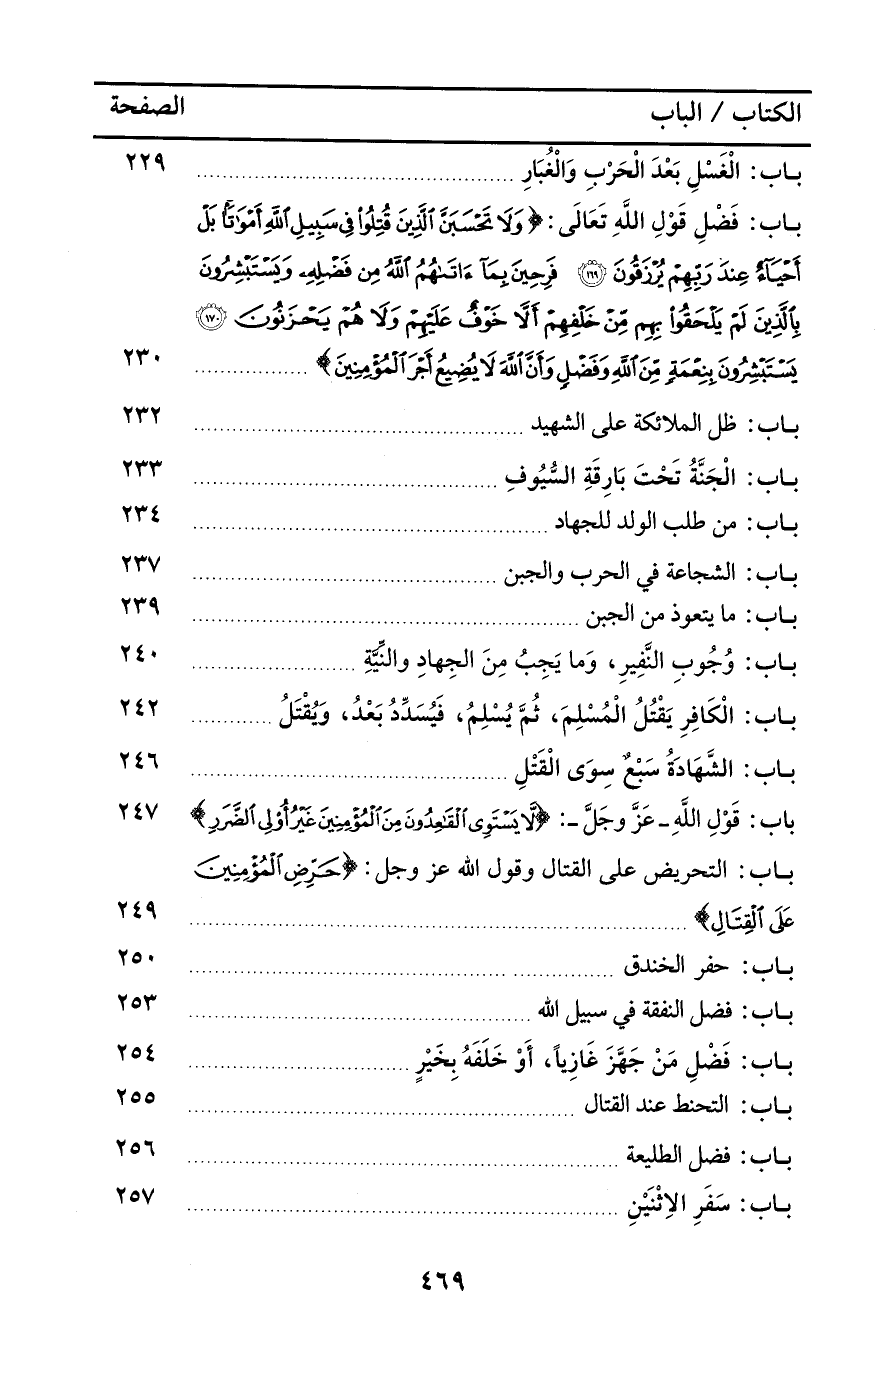 الكتاب / الباب الصفحة
بـاب: الْغَسْلِ بَعْدَ الْحَرْبِ وَالْغُبَارِ ........ ٢٢٩
بـاب: فَضْلِ قَوْلِ اللَّهِ تَعَالَى: ﴿وَلَا تَحْسَبَنَّ ٱلَّذِينَ قُتِلُوا۟ فِى سَبِيلِ ٱللَّهِ أَمْوَٰتًۢا بَلْ
أَحْيَآءٌ عِندَ رَبِّهِمْ يُرْزَقُونَ ﴿١٦٩﴾ فَرِحِينَ بِمَآ ءَاتَىٰهُمُ ٱللَّهُ مِن فَضْلِهِۦ وَيَسْتَبْشِرُونَ
بِٱلَّذِينَ لَمْ يَلْحَقُوا۟ بِهِم مِّنْ خَلْفِهِمْ أَلَّا خَوْفٌ عَلَيْهِمْ وَلَا هُمْ يَحْزَنُونَ ﴿١٧٠﴾
يَسْتَبْشِرُونَ بِنِعْمَةٍ مِّنَ ٱللَّهِ وَفَضْلٍ وَأَنَّ ٱللَّهَ لَا يُضِيعُ أَجْرَ ٱلْمُؤْمِنِينَ﴾ ........ ٢٣٠
بـاب: ظل الملائكة على الشهيد ........ ٢٣٢
بـاب: الْجَنَّةُ تَحْتَ بَارِقَةِ السُّيُوفِ ........ ٢٣٣
بـاب: من طلب الولد للجهاد ........ ٢٣٤
بـاب: الشجاعة في الحرب والجبن ........ ٢٣٧
بـاب: ما يتعوذ من الجبن ........ ٢٣٩
بـاب: وُجُوبِ النَّفِيرِ، وَما يَجِبُ مِنَ الجِهادِ والنِّيَّةِ ........ ٢٤٠
بـاب: الْكَافِرِ يَقْتُلُ الْمُسْلِمَ، ثُمَّ يُسْلِمُ، فَيُسَدِّدُ بَعْدُ، وَيُقْتَلُ ........ ٢٤٢
بـاب: الشَّهَادَةُ سَبْعٌ سِوَى الْقَتْلِ ........ ٢٤٦
باب: قَوْلِ اللَّهِ ـ عَزَّ وجَلَّ ـ: ﴿لَّا يَسْتَوِى ٱلْقَـٰعِدُونَ مِنَ ٱلْمُؤْمِنِينَ غَيْرُ أُو۟لِى ٱلضَّرَرِ﴾ ٢٤٧
بـاب: التحريض على القتال وقول الله عز وجل: ﴿حَرِّضِ ٱلْمُؤْمِنِينَ
عَلَى ٱلْقِتَالِ﴾ ........ ٢٤٩
بـاب: حفر الخندق ........ ٢٥٠
بـاب: فضل النفقة في سبيل الله ........ ٢٥٣
بـاب: فَضْلِ مَنْ جَهَّزَ غَازِياً، أَوْ خَلَفَهُ بِخَيْرٍ ........ ٢٥٤
بـاب: التحنط عند القتال ........ ٢٥٥
بـاب: فضل الطليعة ........ ٢٥٦
بـاب: سَفَرِ الاِثْنَيْنِ ........ ٢٥٧
٤٦٩